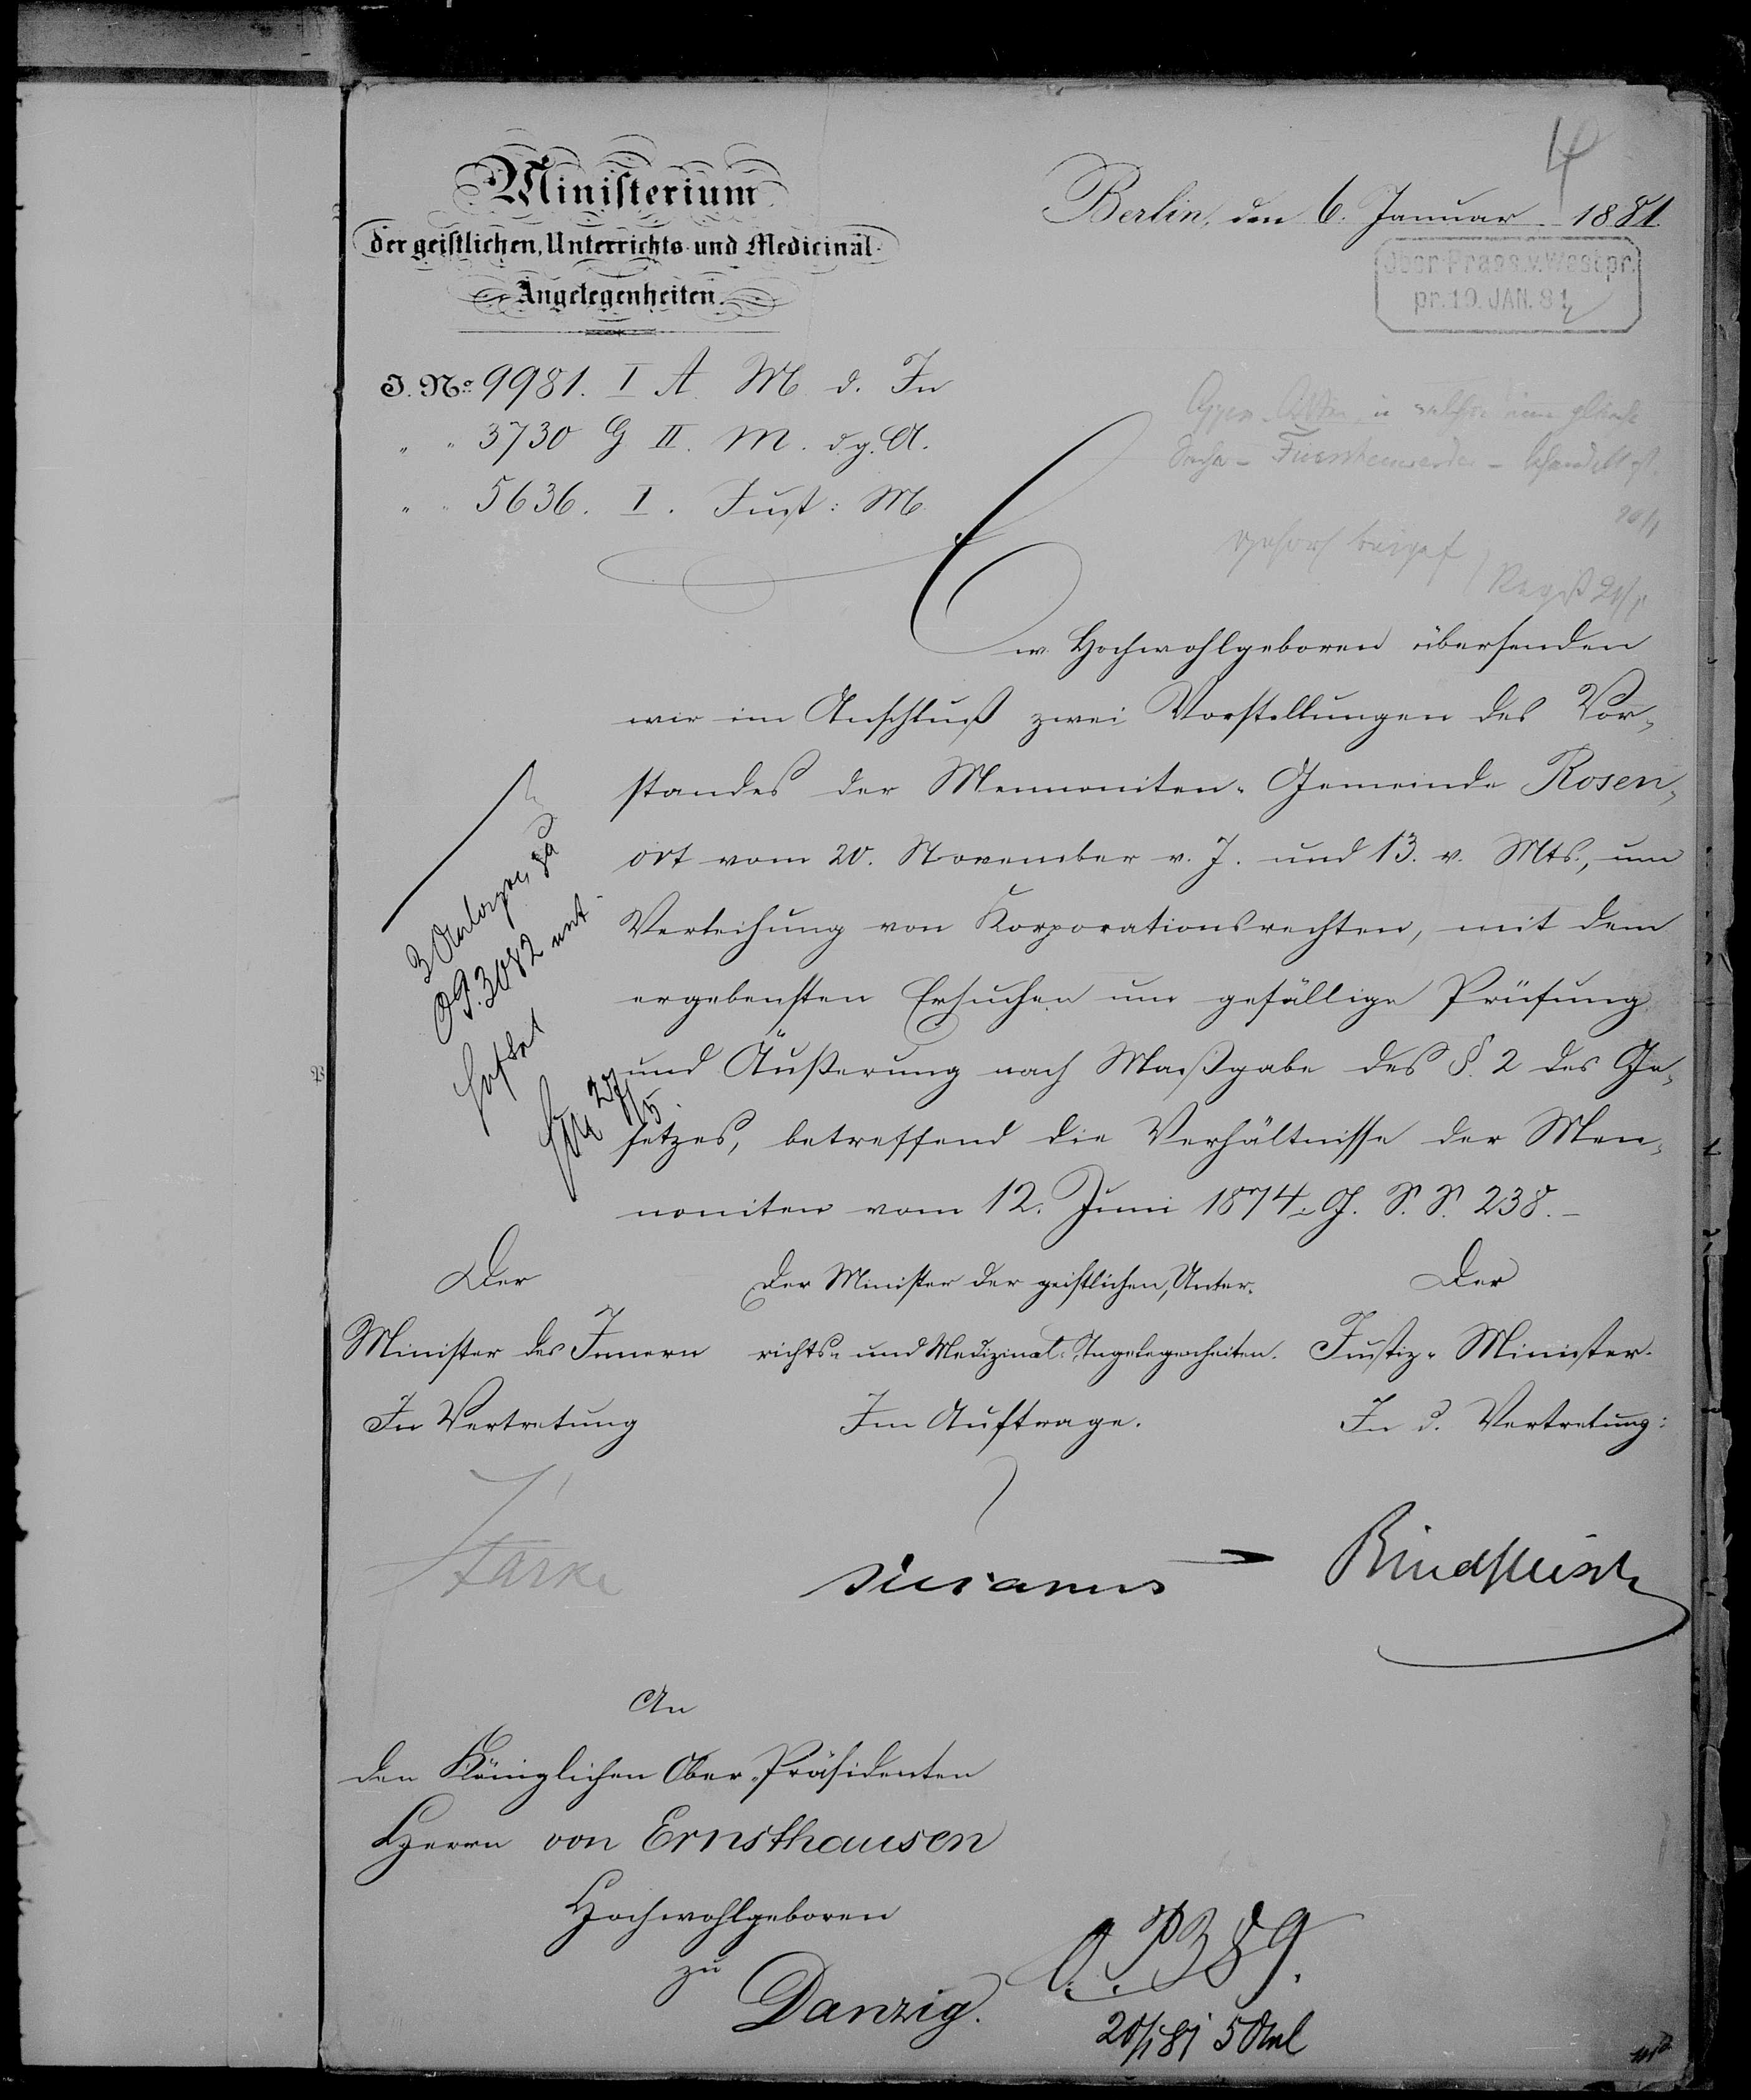 4
Ministerium
der geistlichen, Unterrichts- und Medicinal-
Angelegenheiten.
Berlin, den 6. Januar 1881.
Ober-Praes.v.Westpr.
pr. 10. JAN. 81
J. No. 9981. I A. M. d. In
" " 3730 G II. M. d. g. A.
" " 5636. I. Just: M.
Fuerstenwerder - behandelt ist.
20/1
Regist 21/1
Ew. Hochwohlgeboren übersenden
wir im Anschluß zwei Vorstellungen des Vor-
standes der Mennoniten-Gemeinde Rosen-
ort vom 20. November v. J. und 13. v. Mts., um
Verleihung von Korporationsrechten, mit dem
ergebensten Ersuchen um gefällige Prüfung
und Äußerung nach Maßgabe des §. 2 des Ge-
setzes, betreffend die Verhältnisse der Men-
noniten vom 12. Juni 1874. G. S. S. 238. -
3 Anlagen zu
O.P. 3082 ent-
heftet
27/5.
Der
Minister des Innern
In Vertretung
Starke
Der Minister der geistlichen, Unter-
richts- und Medizinal-Angelegenheiten.
Im Auftrage.
Der
Justiz-Minister.
In d. Vertretung:
Rindfleisch
An
den Königlichen Ober-Präsidenten
Herrn von Ernsthausen
Hochwohlgeboren
zu
Danzig.
O. P. 389.
20/1 81 5 Anl